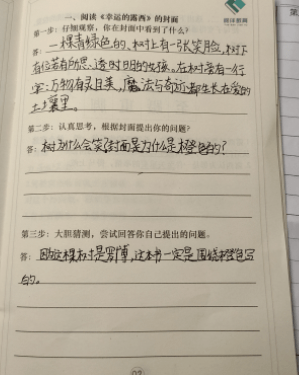 一、阅读《幸运的露西》的封面
第一步:仔细观察，你在封面中看到了什么?
答:一棵青绿色的、树上有一张笑脸,树下
有位若有所思、透明的女孩,左树旁有一行
字:万物有灵且美,魔法与奇迹都生长在爱的
土壤里。
第二步:认真思考，根据封面提出你的问题?
答:树为什么会笑?封面是为什么是橙色的?
第三步:大胆猜测，尝试回答你自己提出的问题。
答:因为这棵树是罗博,这本书一定是围绕橙色写
的。
02